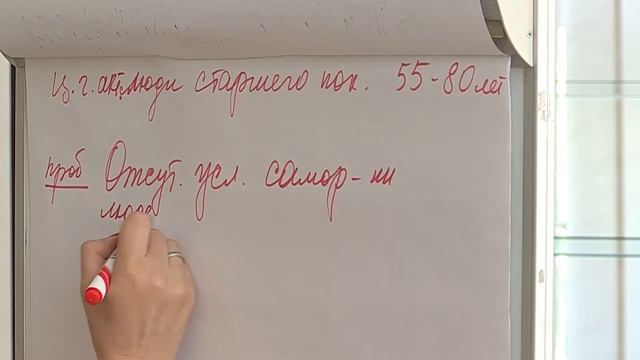 Ц. г. акт. люди старшего пок. 55-80 лет
проб Отсут. усл. самор-ии